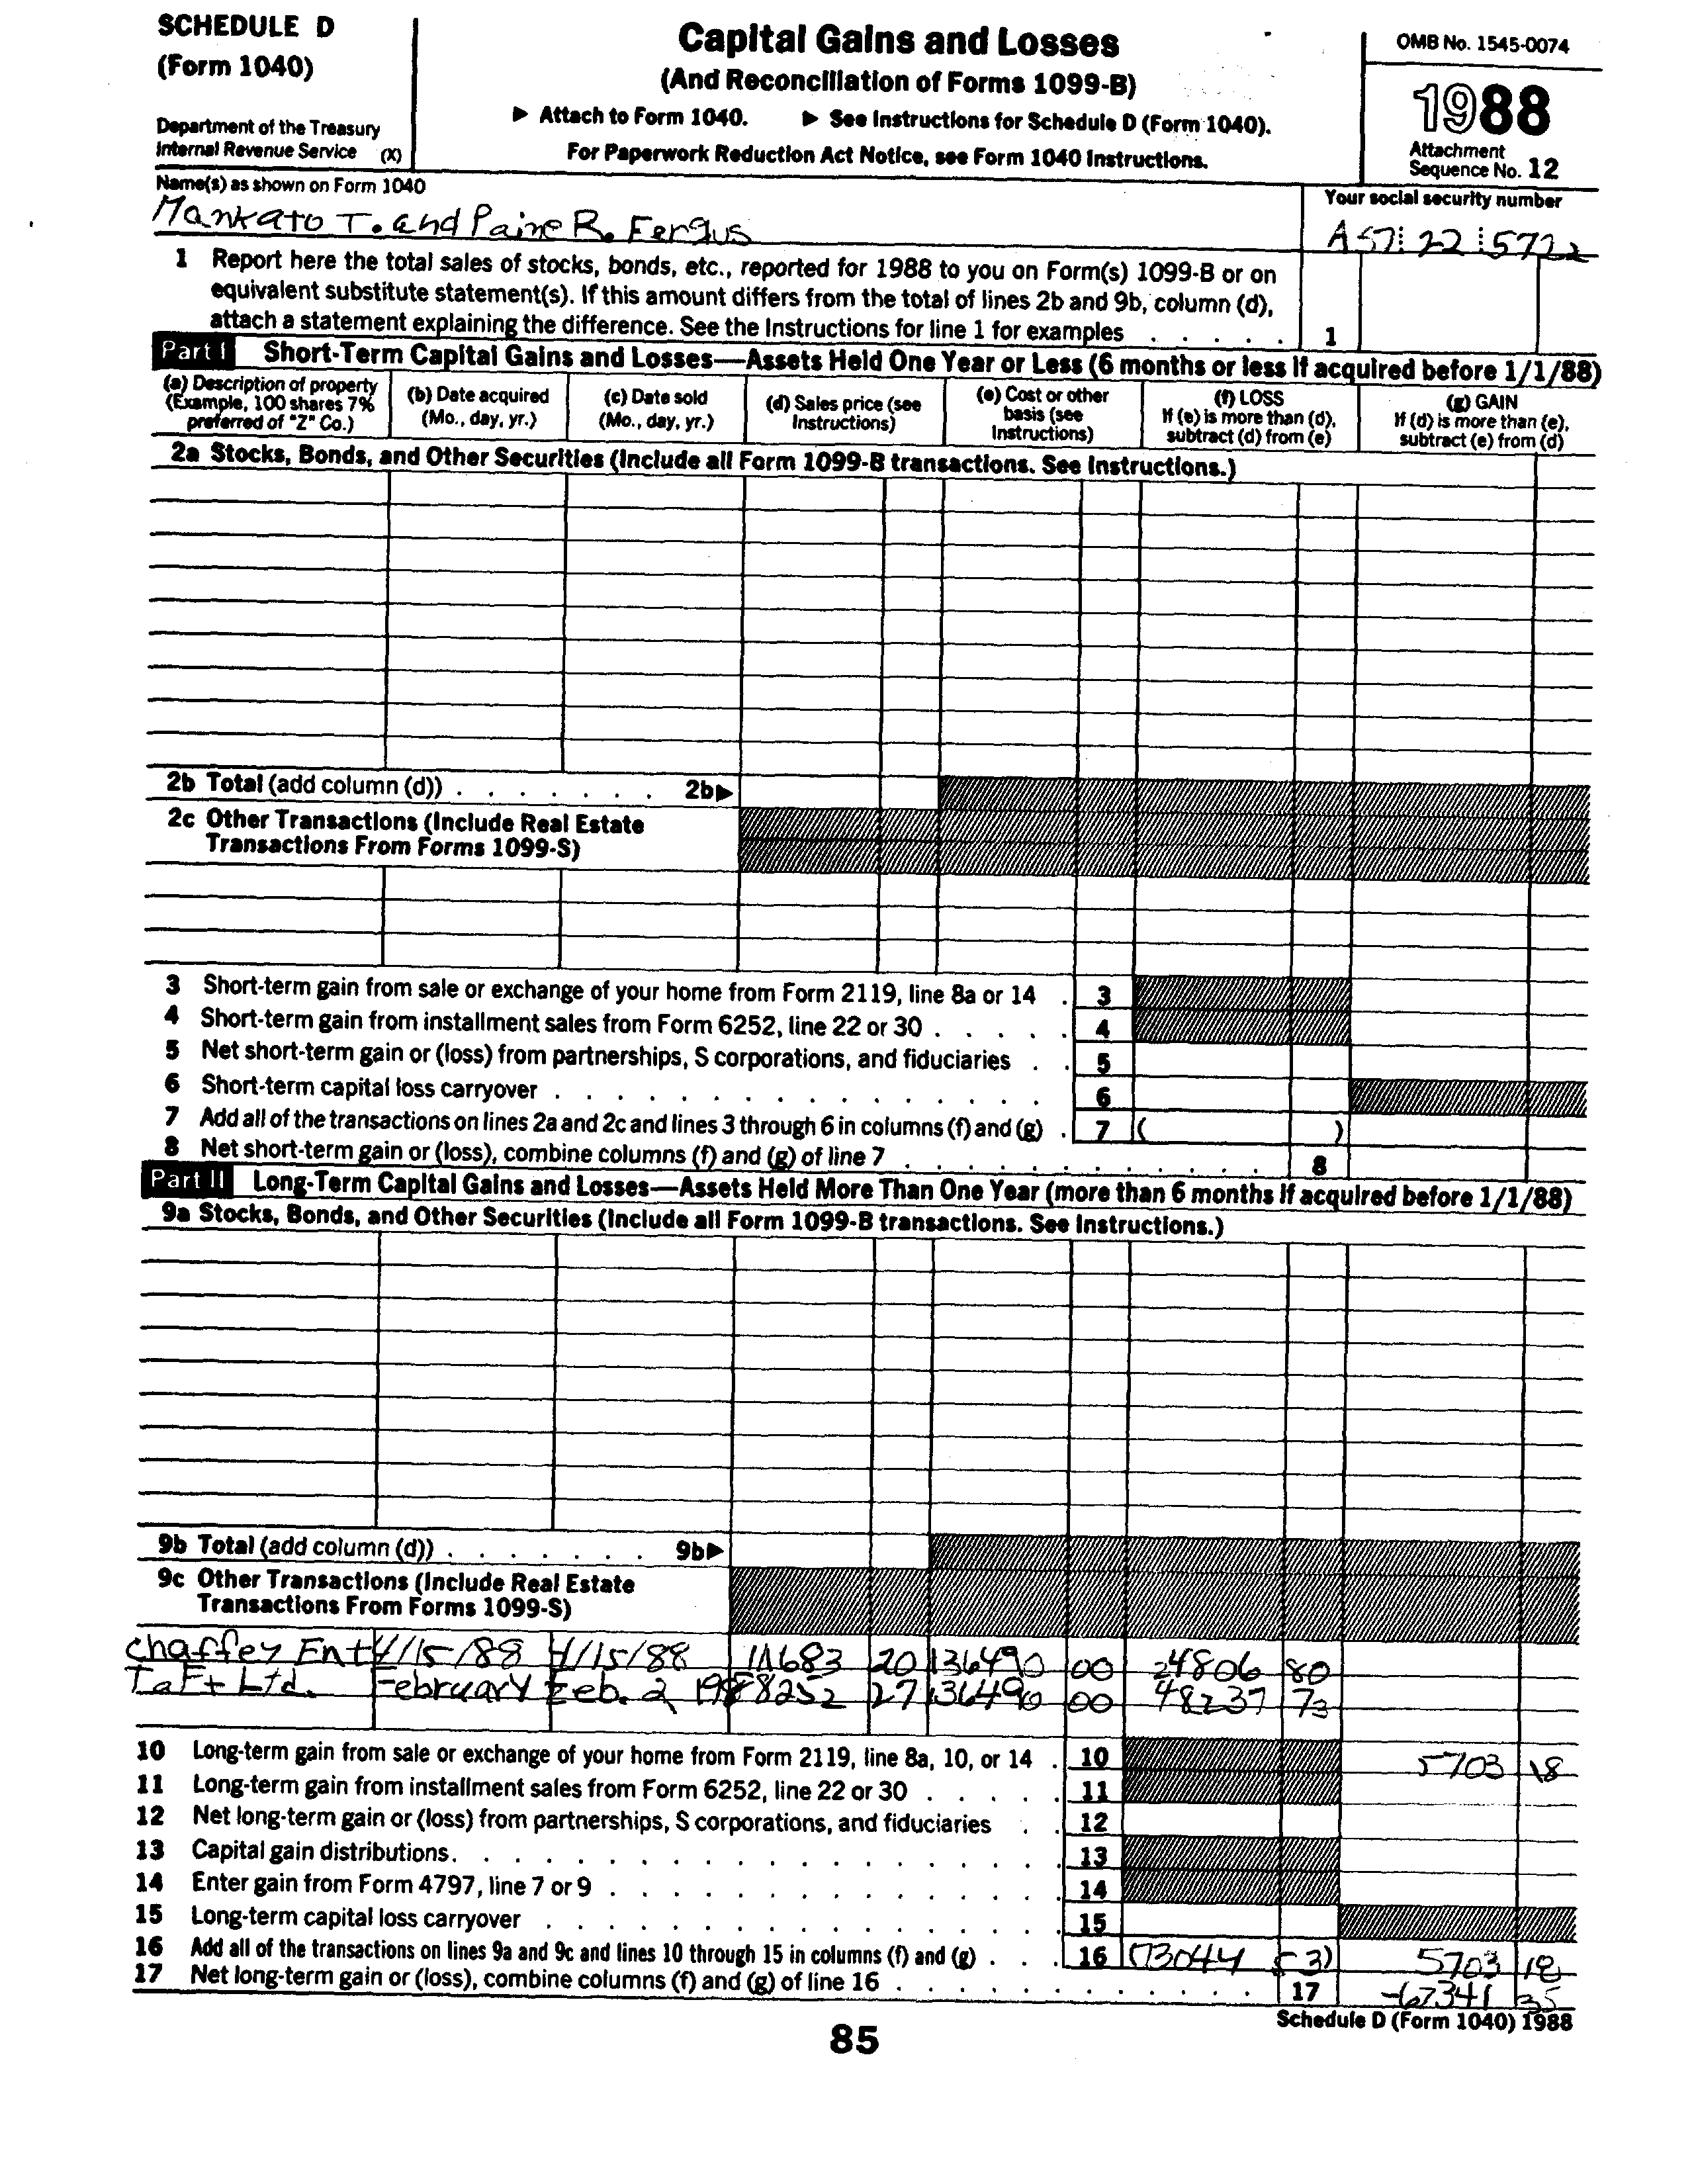 SCHEDULE D
(Form 1040)
Department of the Treasury
Internal Revenue Service (X)
Capital Gains and Losses
(And Reconciliation of Forms 1099-B)
▶ Attach to Form 1040. ▶ See Instructions for Schedule D (Form 1040).
For Paperwork Reduction Act Notice, see Form 1040 Instructions.
OMB No. 1545-0074
1988
Attachment
Sequence No. 12
Name(s) as shown on Form 1040
Mankato T. and Paine R. Fergus
Your social security number
A57 22 5722
1 Report here the total sales of stocks, bonds, etc., reported for 1988 to you on Form(s) 1099-B or on
equivalent substitute statement(s). If this amount differs from the total of lines 2b and 9b, column (d),
attach a statement explaining the difference. See the Instructions for line 1 for examples . . . . . 1
Part I Short-Term Capital Gains and Losses—Assets Held One Year or Less (6 months or less if acquired before 1/1/88)
(a) Description of property
(Example, 100 shares 7%
preferred of "Z" Co.)
(b) Date acquired
(Mo., day, yr.)
(c) Date sold
(Mo., day, yr.)
(d) Sales price (see
Instructions)
(e) Cost or other
basis (see
Instructions)
(f) LOSS
If (e) is more than (d),
subtract (d) from (e)
(g) GAIN
If (d) is more than (e),
subtract (e) from (d)
2a Stocks, Bonds, and Other Securities (Include all Form 1099-B transactions. See Instructions.)
2b Total (add column (d)) . . . . . . . 2b▶
2c Other Transactions (Include Real Estate
Transactions From Forms 1099-S)
3 Short-term gain from sale or exchange of your home from Form 2119, line 8a or 14 . 3
4 Short-term gain from installment sales from Form 6252, line 22 or 30 . . . . . 4
5 Net short-term gain or (loss) from partnerships, S corporations, and fiduciaries . . 5
6 Short-term capital loss carryover . . . . . . . . . . . . . . . . 6
7 Add all of the transactions on lines 2a and 2c and lines 3 through 6 in columns (f) and (g) . 7 ( )
8 Net short-term gain or (loss), combine columns (f) and (g) of line 7 . . . . . . . . . . . . 8
Part II Long-Term Capital Gains and Losses—Assets Held More Than One Year (more than 6 months if acquired before 1/1/88)
9a Stocks, Bonds, and Other Securities (Include all Form 1099-B transactions. See Instructions.)
9b Total (add column (d)) . . . . . . . 9b▶
9c Other Transactions (Include Real Estate
Transactions From Forms 1099-S)
Chaffey Ent 4/15/88 4/15/88 111683 20 136490 00 24806 80
Taft Ltd. February Feb. 2, 88252 27 136490 00 48237 73
10 Long-term gain from sale or exchange of your home from Form 2119, line 8a, 10, or 14 . 10 5703 18
11 Long-term gain from installment sales from Form 6252, line 22 or 30 . . . . . 11
12 Net long-term gain or (loss) from partnerships, S corporations, and fiduciaries . . 12
13 Capital gain distributions . . . . . . . . . . . . . . . . . . 13
14 Enter gain from Form 4797, line 7 or 9 . . . . . . . . . . . . . . 14
15 Long-term capital loss carryover . . . . . . . . . . . . . . . . 15
16 Add all of the transactions on lines 9a and 9c and lines 10 through 15 in columns (f) and (g) . . . 16 (73044 53) 5703 18
17 Net long-term gain or (loss), combine columns (f) and (g) of line 16 . . . . . . . . . . . . 17 -67341 35
Schedule D (Form 1040) 1988
85